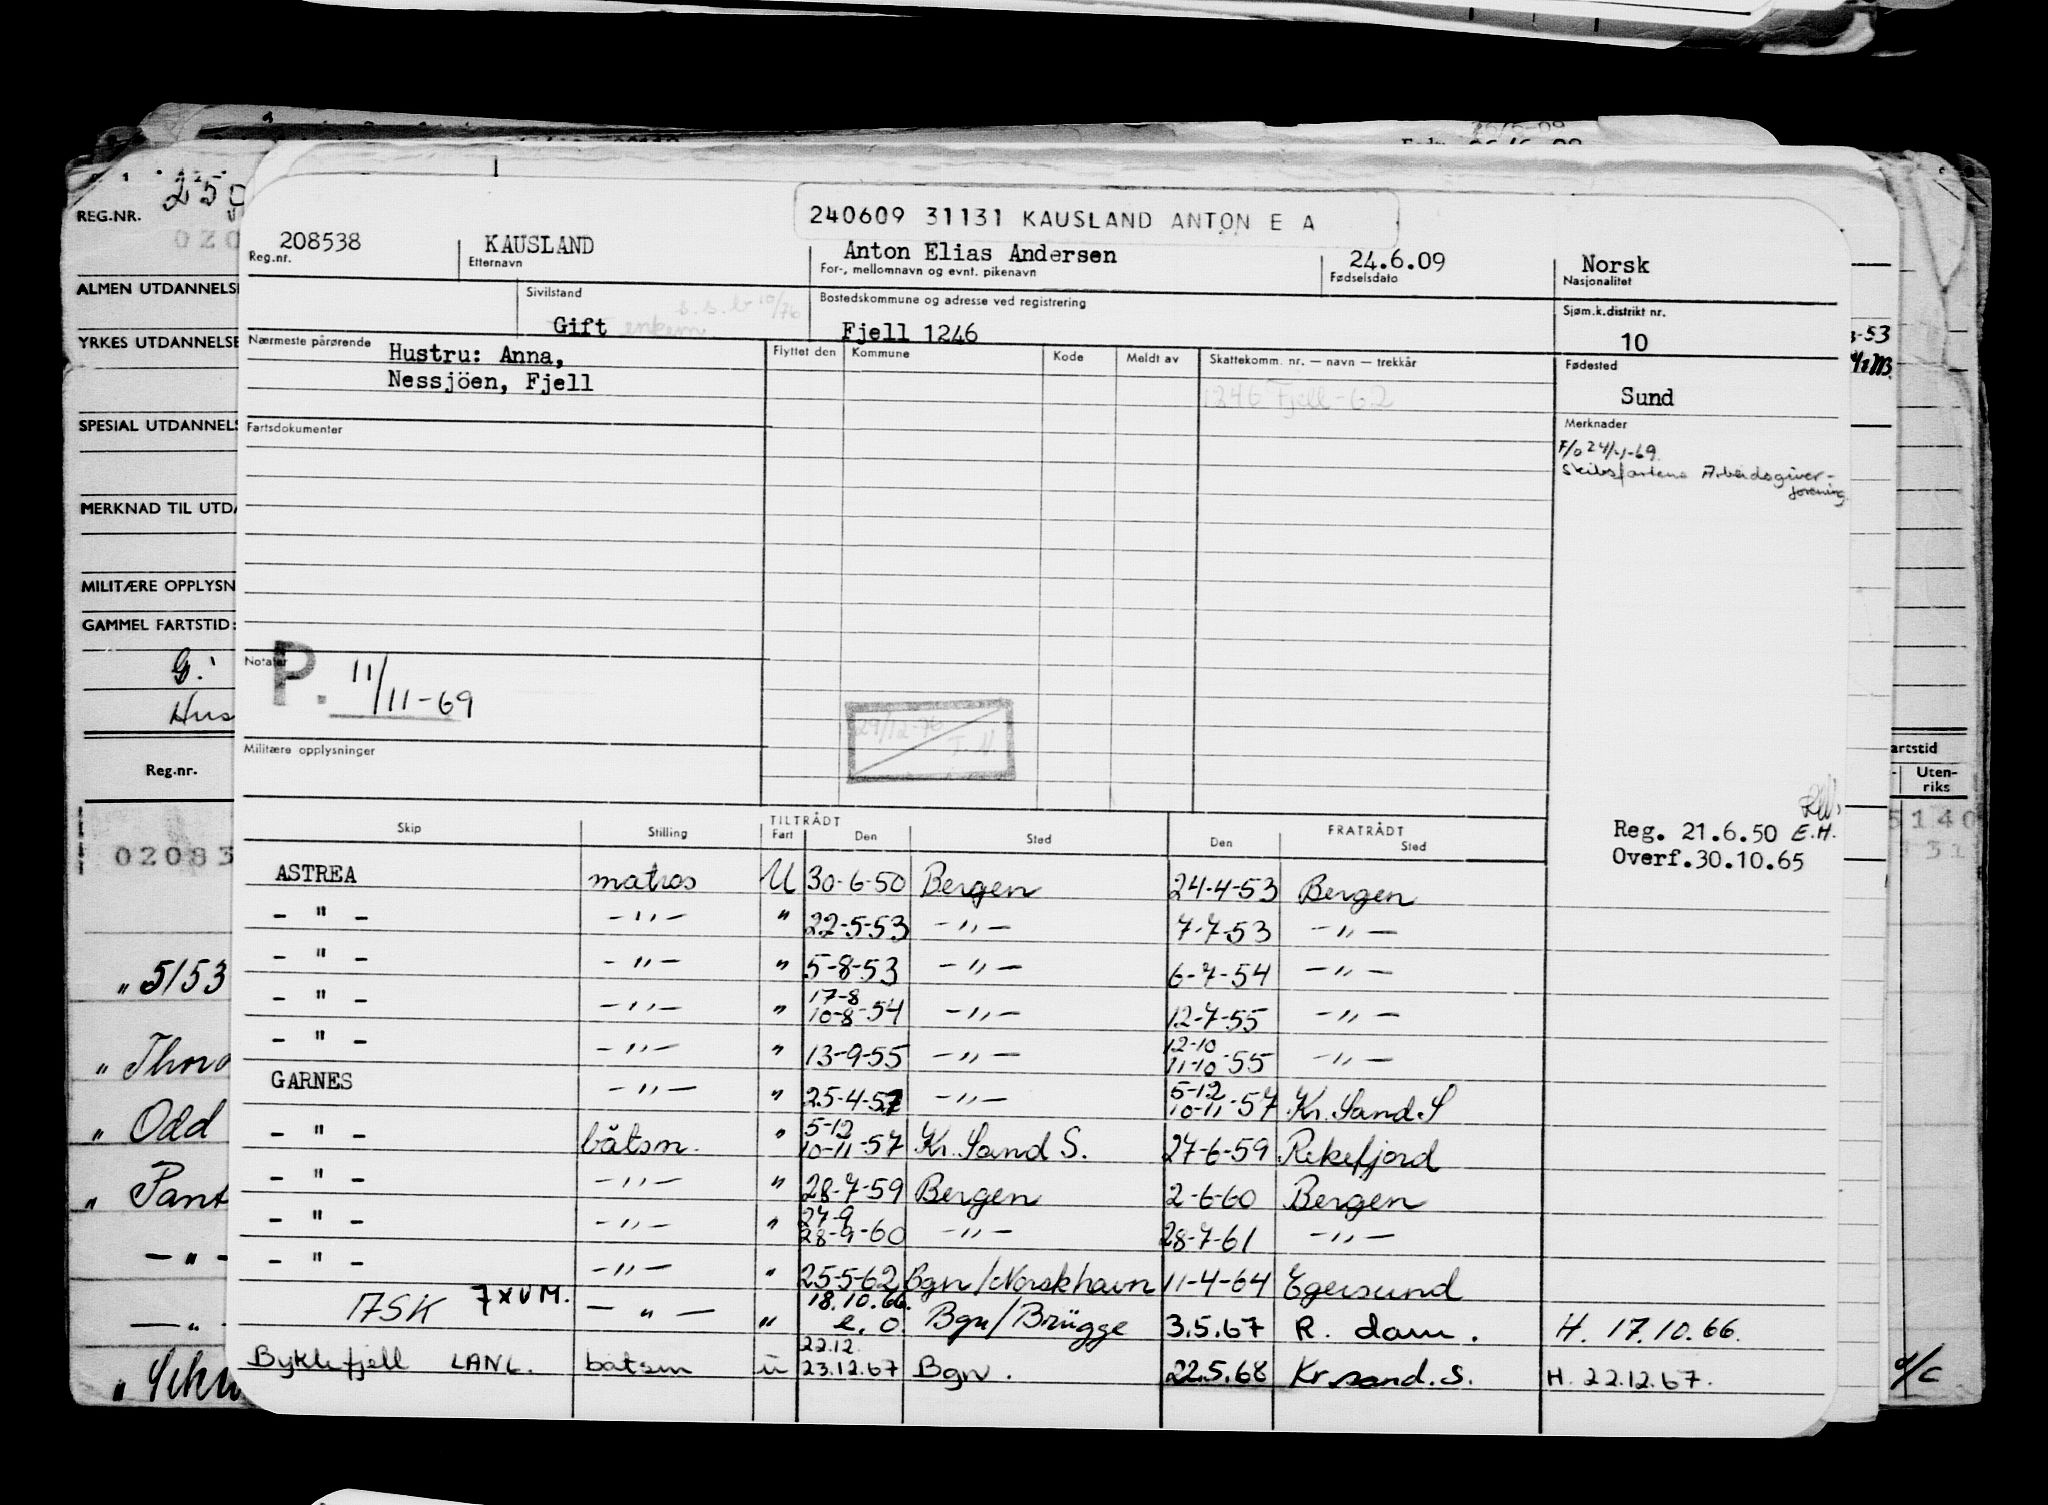 240609 31131 KAUSLAND ANTON E A
208538 KAUSLAND Anton Elias Andersen 24.6.09 Norsk
Reg.nr. Etternavn For-, mellomnavn og evnt. pikenavn Fødselsdato Nasjonalitet
Sivilstand Bostedskommune og adresse ved registrering Sjøm.k.distrikt nr.
s.s.b 10/76
Gift enkem. Fjell 1246 10
Nærmeste pårørende Hustru: Anna, Flyttet den Kommune Kode Meldt av Skattekomm. nr. — navn — trekkår Fødested
Nessjöen, Fjell 1246 Fjell-62 Sund
Fartsdokumenter Merknader
F/o 24/-1-69.
Skibsfartens Arbeidsgiver-
forening
Notater P. 11/11-69
29/12-76
Militære opplysninger
Reg. 21.6.50 E.H.
Overf.30.10.65
Skip Stilling TILTRÅDT FRATRÅDT
Fart Den Sted Den Sted
ASTREA matros U 30-6-50 Bergen 24-4-53 Bergen
- " - -"- " 22-5-53 -"- 7-7-53 -"-
- " - -"- " 5-8-53 -"- 6-7-54 -"-
- " - -"- " 17-8 10-8-54 -"- 12-7-55 -"-
- " - -"- " 13-9-55 -"- 12-10 11-10-55 -"-
GARNES -"- " 25-4-57 -"- 5-12 10-11-57 Kr.Sand.S
- " - båtsm. " 5-12 10-11-57 Kr.Sand S. 27-6-59 Rekefjord
- " - -"- " 28-7-59 Bergen 2-6-60 Bergen
- " - -"- " 27-9 28-9-60 -"- 28-7-61 -"-
- " - -"- " 25-5-62 Bgn/Norsk havn 11-4-64 Egersund
ASK 7XVM. -"- " 18.10.66. e.o. Bgn/Brügge 3.5.67 R.dam. H. 17.10.66.
Byklefjell LANL. båtsm u 22.12. 23.12.67 Bgn. 22.5.68 Kr.sand.S. H. 22.12.67.
REG.NR. 250
020
ALMEN UTDANNELSE
YRKES UTDANNELSE
SPESIAL UTDANNELS
MERKNAD TIL UTDA
MILITÆRE OPPLYSN
GAMMEL FARTSTID:
G.
Hus
Reg.nr.
02083
" 5153
" Thor
" Odd
" Pant
- " -
- " -
-53
artstid
Uten-
riks
5140
31